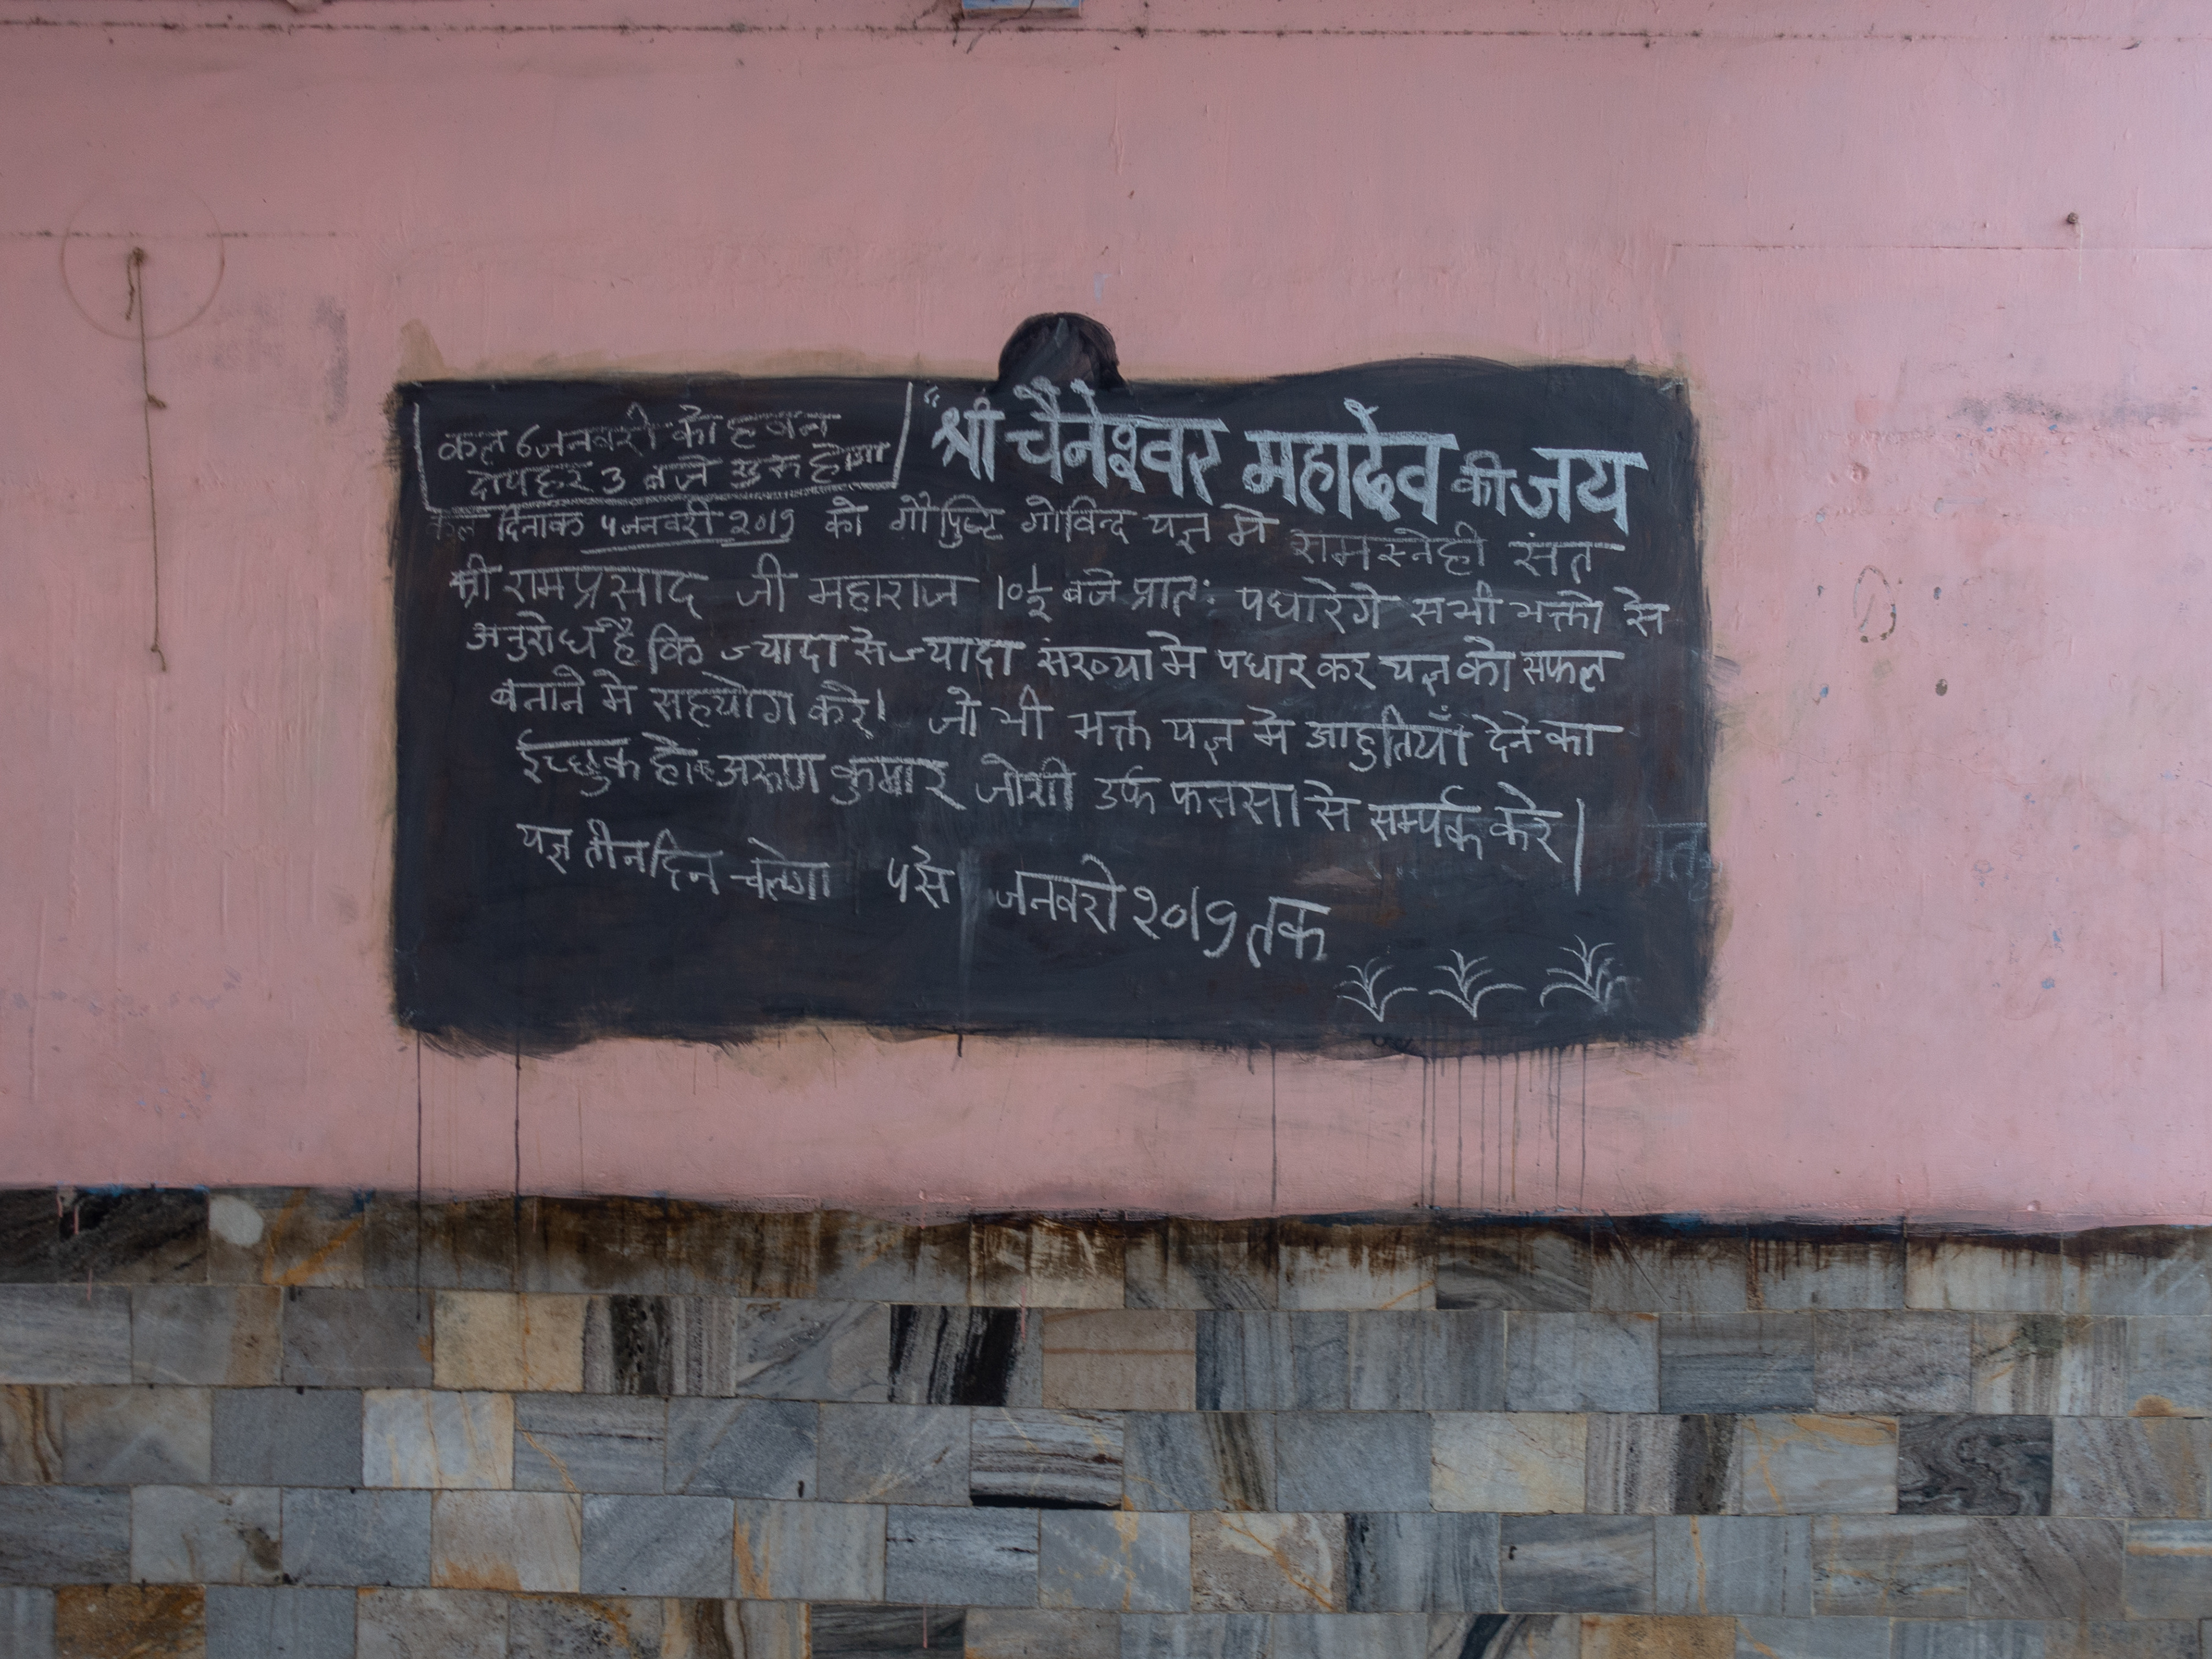 कल 6 जनवरी को हवन
दोपहर 3 बजे शुरु होगा
"श्री चैनेश्वर महादेव की जय
कल दिनाक ५ जनवरी २०१९ को गौपुष्टि गोविन्द यज्ञ मे रामस्नेही संत
श्री रामप्रसाद जी महाराज १०½ बजे प्रातः पधारेगे सभी भक्तो से
अनुरोध है कि ज्यादा से ज्यादा संख्या मे पधार कर यज्ञ को सफल
बनाने मे सहयोग करे। जो भी भक्त यज्ञ मे आहुतियाँ देने का
ईच्छुक हो अरुण कुमार जोशी उर्फ से सर्म्पक करे।
यज्ञ तीन दिन चलेगा ५ से जनवरी २०१९ तक